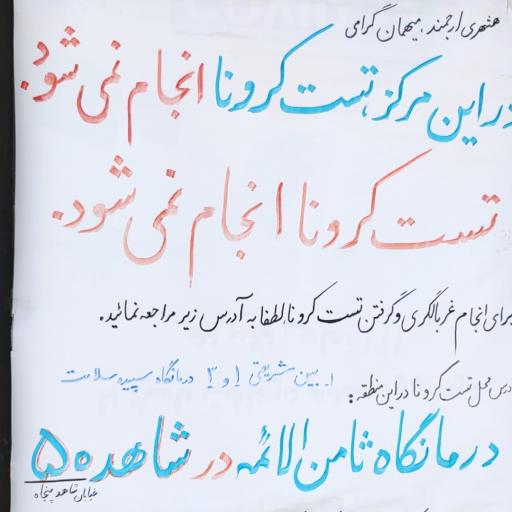 همشهری ارجمند، میهمان گرامی
در این مرکز، تست کرونا انجام نمی شود.
تست کرونا انجام نمی شود.
برای انجام غربالگری و گرفتن تست کرونا لطفا به آدرس زیر مراجعه نمائید.
آدرس محل تست کرونا در این منطقه:
۱- بین شریعتی ۱ و ۳ درمانگاه سپیده سلامت
درمانگاه ثامن الائمه در شاهد ۵
خیابان شاهد پنجاه